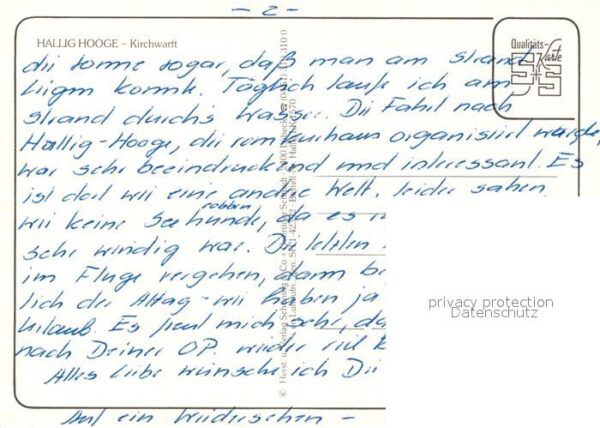 - 2 -
HALLIG HOOGE – Kirchwarft
Qualitäts-Karte
S+S
die sonne sogar, daß man am strand
liegen konnte. Täglich laufe ich am
strand durchs Wasser. Die Fahrt nach
Hallig-Hooge, die vom Kurhaus organisiert wurde,
war sehr beeindruckend und interessant. Es
ist dort wie eine andere Welt. leider sahen
robben
wir keine Seehunde, da es
sehr windig war. Die letzten
im Fluge vergehen, dann
lich der Alltag - wir haben ja
Urlaub. Es freut mich sehr, da
nach Deiner OP. wieder
Alles liebe wünsche ich Dir
Auf ein Wiedersehen -
privacy protection
Datenschutz